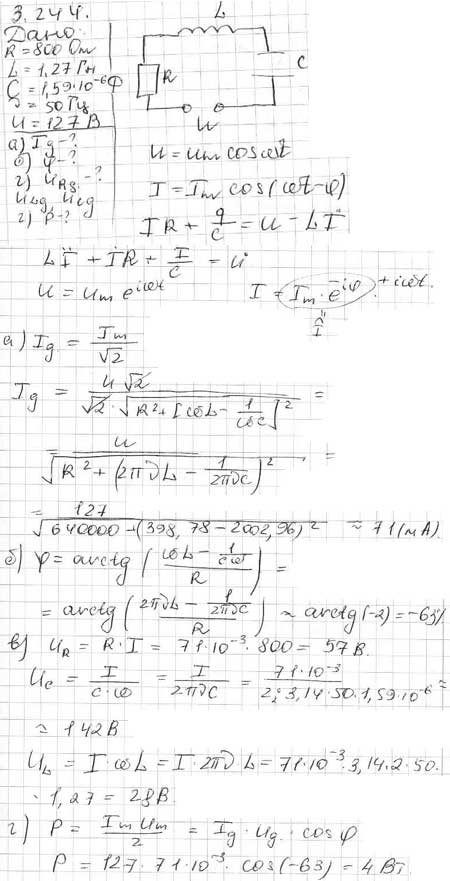 3.244.
Дано:
R = 800 Ом
L = 1,27 Гн
C = 1,59·10⁻⁶ Ф
ν = 50 Гц
U = 127 В
а) Iд - ?
б) φ - ?
г) URд - ?
ULд, UCд
г) P - ?
L
R
C
U
U = Um cos ωt
I = Im cos(ωt-φ)
IR + q/C = U - Lİ
LÏ + İR + I/C = U̇
U = Um e^(iωt)
I = Im · e^(-iφ + iωt).
Î
а) Iд = Im/√2
Iд = U√2 / (√2 · √(R² + [ωL - 1/(ωC)]²)) =
= U / √(R² + (2πνL - 1/(2πνC))²) =
= 127 / √(640000 + (398,78 - 2002,96)²) ≈ 71 (мА).
б) φ = arctg((ωL - 1/(Cω))/R) =
= arctg((2πνL - 1/(2πνC))/R) ≈ arctg(-2) = -63°
в) UR = R·I = 71·10⁻³·800 = 57 В.
UC = I/(C·ω) = I/(2πνC) = 71·10⁻³/(2·3,14·50·1,59·10⁻⁶) ≈
≈ 142 В
UL = I·ωL = I·2πν L = 71·10⁻³·3,14·2·50·
·1,27 = 28 В.
г) P = ImUm/2 = Iд·Uд·cos φ
P = 127·71·10⁻³·cos(-63) = 4 Вт.